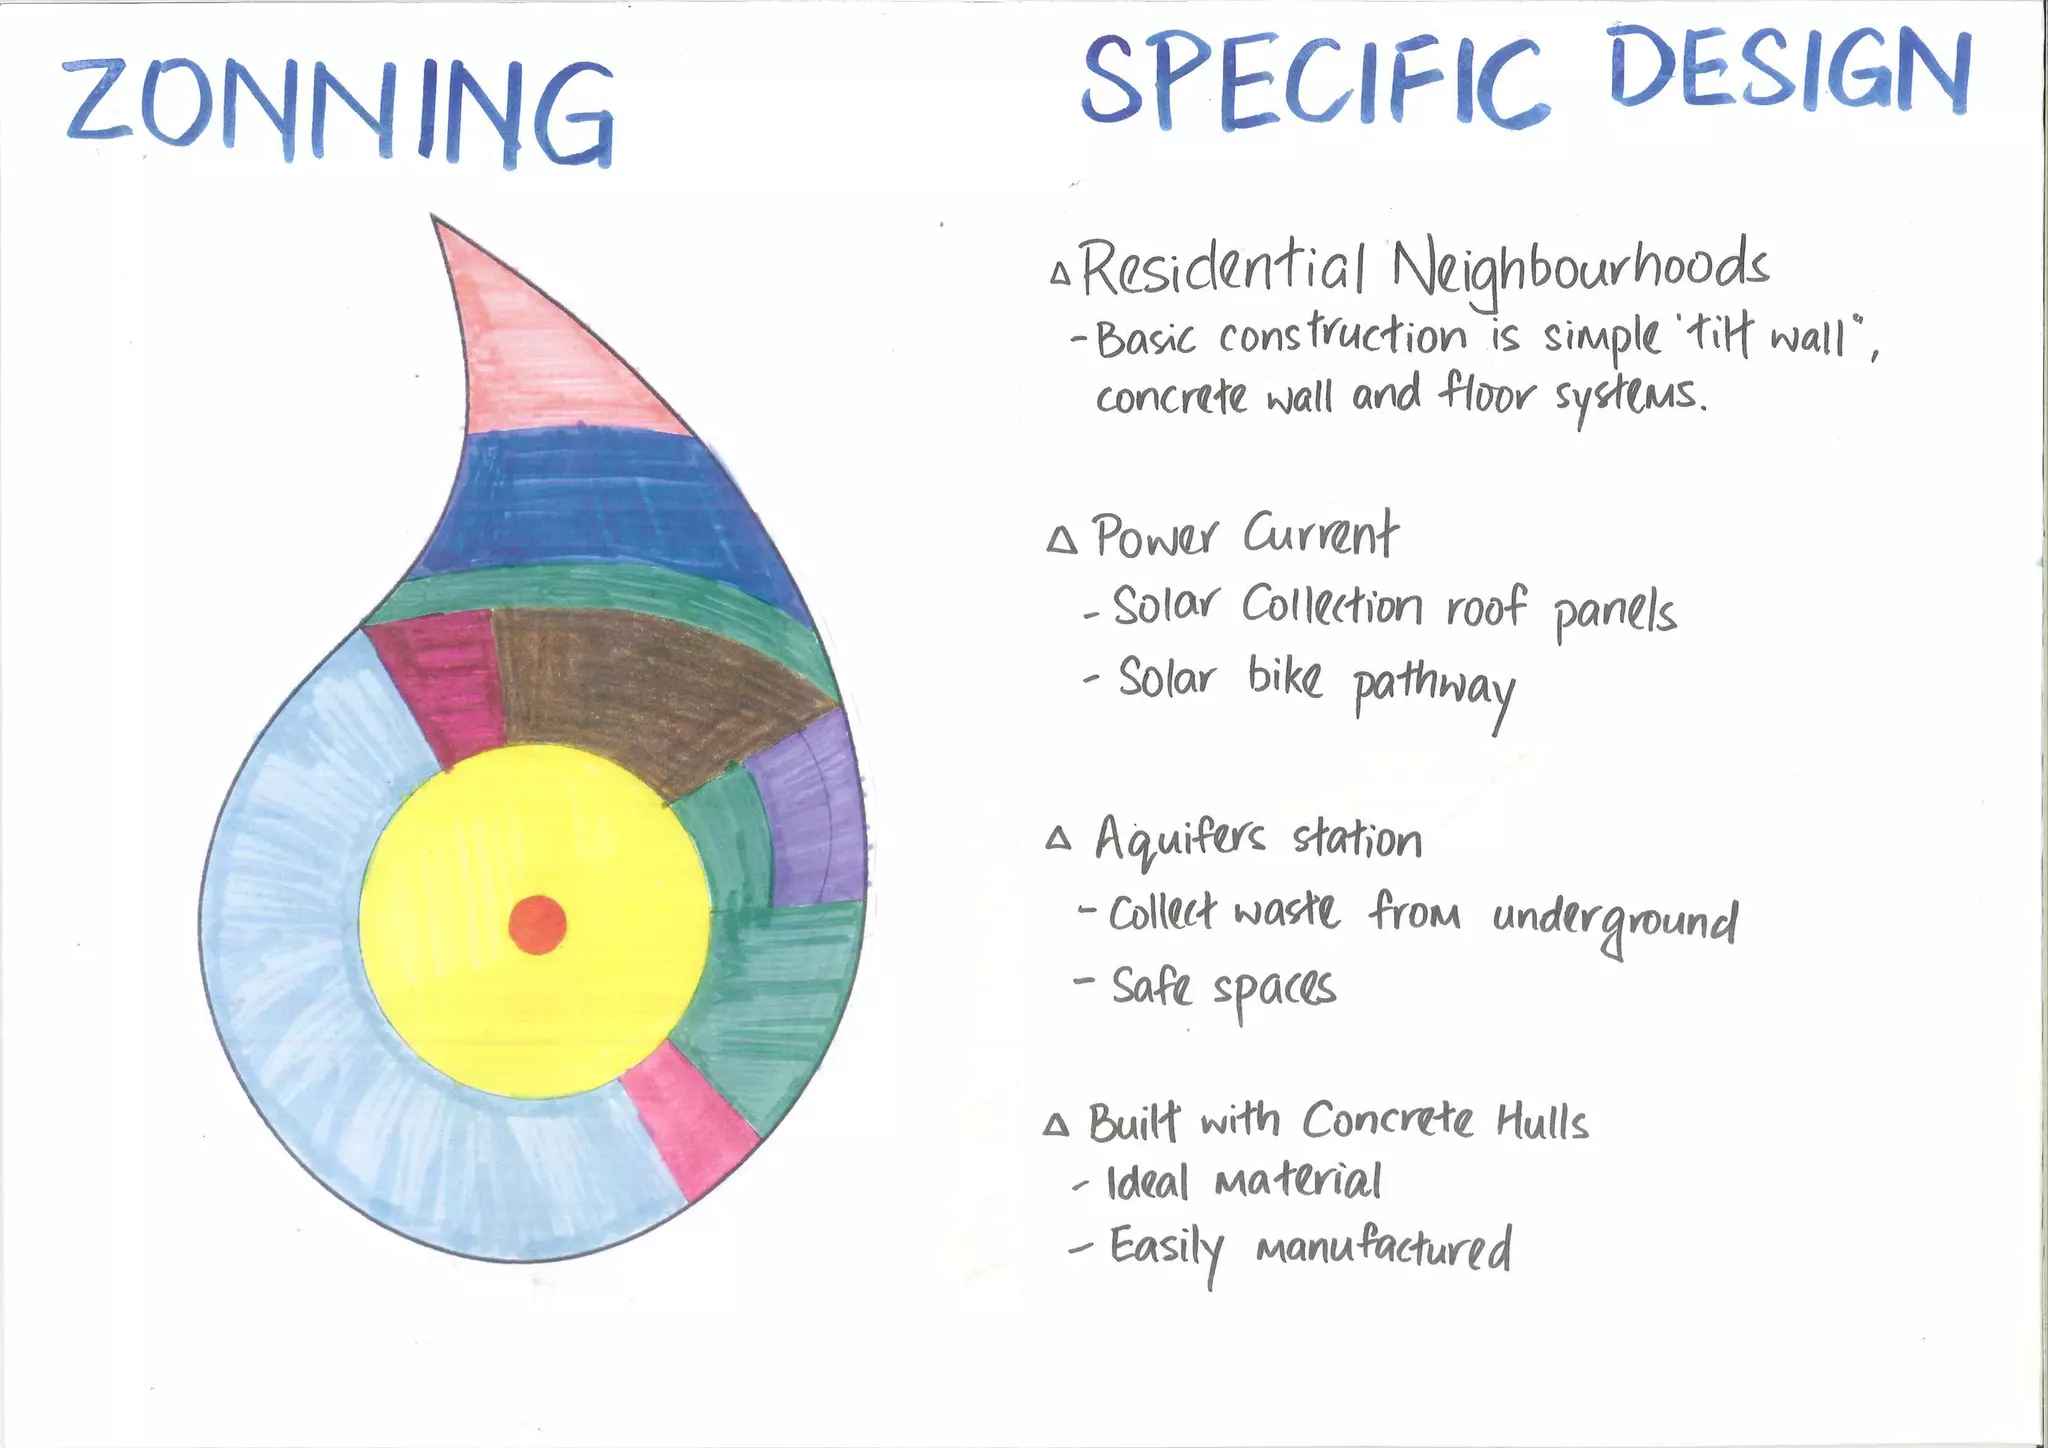 ZONNING
SPECIFIC DESIGN
Δ Residential Neighbourhoods
- Basic construction is simple 'tilt wall",
concrete wall and floor systems.
Δ Power Current
- Solar Collection roof panels
- Solar bike pathway
Δ Aquifers station
- Collect waste from underground
- Safe spaces
Δ Built with Concrete Hulls
- Ideal material
- Easily manufactured